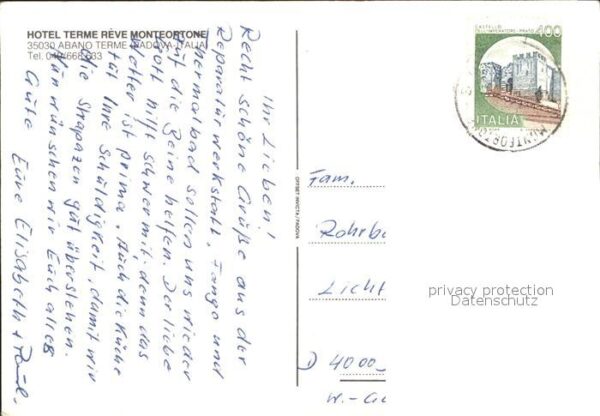 HOTEL TERME RÊVE MONTEORTONE
35030 ABANO TERME (PADOVA-ITALIA)
Tel. 049/668633
Ihr Lieben!
Recht schöne Grüße aus der
Reparaturwerkstatt, Fango und
Thermalbad sollen uns wieder
auf die Beine helfen. Der liebe
Gott hilft schwer mit, denn das
Wetter ist prima. Auch die Küche
tut Ihre Schuldigkeit, damit wir
die Strapazen gut überstehen.
Nun wünschen wir Euch alles
Gute Eure Elisabeth + Paul.
OFFSET INVICTA/PADOVA
CASTELLO
DELL'IMPERATORE - PRATO
400
ITALIA
Fam.
Rohrb
Licht
D 4000
privacy protection
Datenschutz